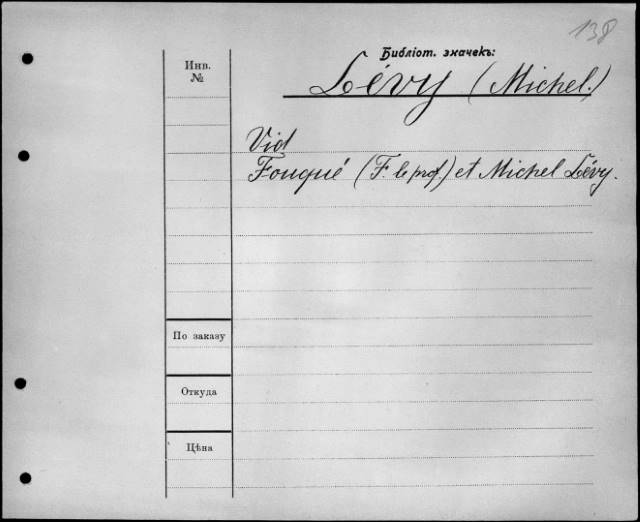 138
Библіот. значекъ:
Инв.
№
Lévy (Michel.)
Vid
Fouqué (F. le prof.) et Michel Lévy.
По заказу
Откуда
Цѣна